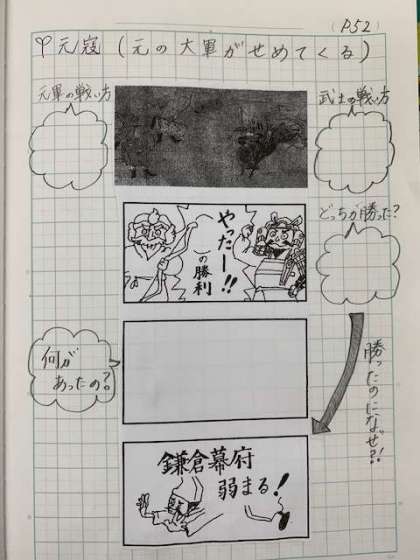 (P52)
元寇(元の大軍がせめてくる)
元軍の戦い方
武士の戦い方
どっちが勝った?
やったー!!
の勝利
何が
あったの?
勝ったのになぜ?!
鎌倉幕府
弱まる!